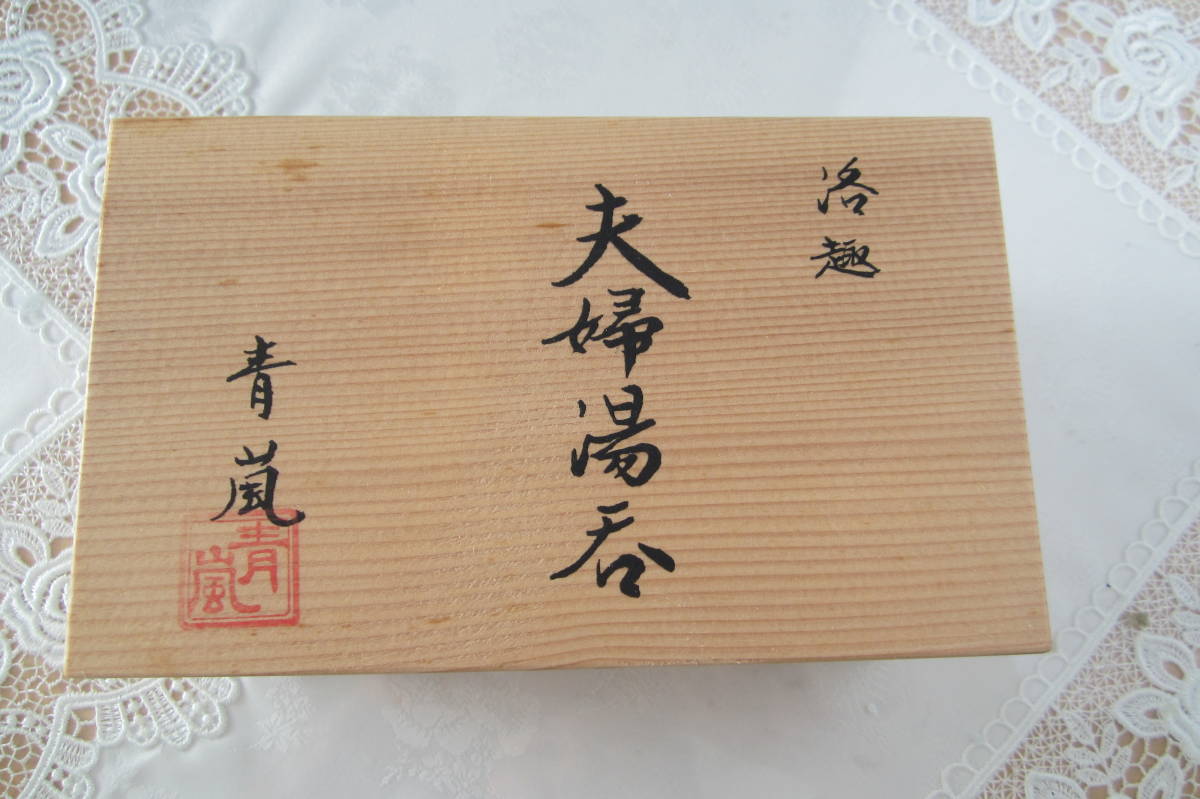 洛趣
夫婦湯呑
青嵐
青嵐